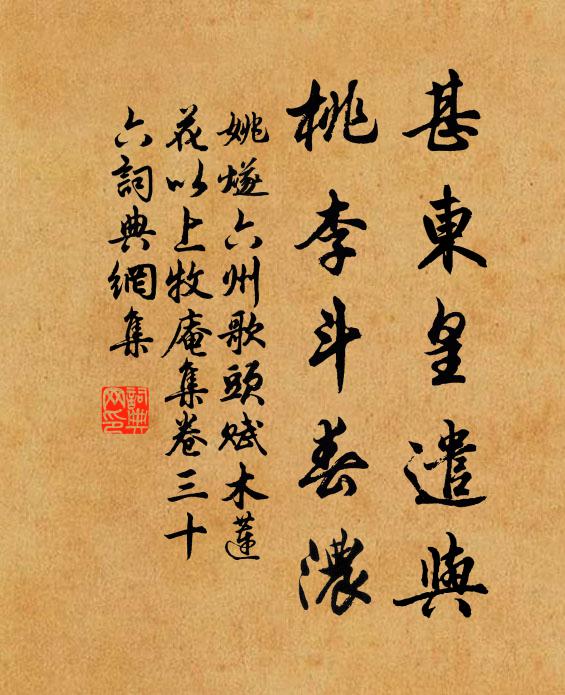 甚東皇遣與
桃李斗春濃
姚燧六州歌頭賦木蓮
花以上牧庵集卷三十
六詞典網集
詞典網印